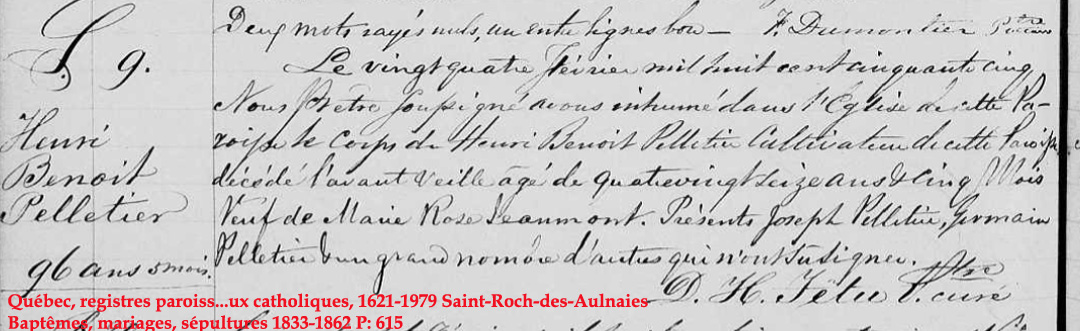 Deux mots rayés nuls, un entre lignes bon — F. Dumontier Ptre
S. 9.
Henri
Benoit
Pelletier
96 ans 5 mois.
Le vingt quatre Février mil huit cent cinquante cinq
Nous Prêtre soussigné avons inhumé dans l'Eglise de cette Pa-
roisse le Corps de Henri Benoit Pelletier Cultivateur de cette Paroisse
décédé l'avant veille âgé de quatrevingt seize ans & cinq Mois
Veuf de Marie Rose Jeanmont. Présents Joseph Pelletier, Germain
Pelletier & un grand nombre d'autres qui n'ont su signer.
D. H. Têtu Ptre curé
Québec, registres paroiss...ux catholiques, 1621-1979 Saint-Roch-des-Aulnaies
Baptêmes, mariages, sépultures 1833-1862 P: 615